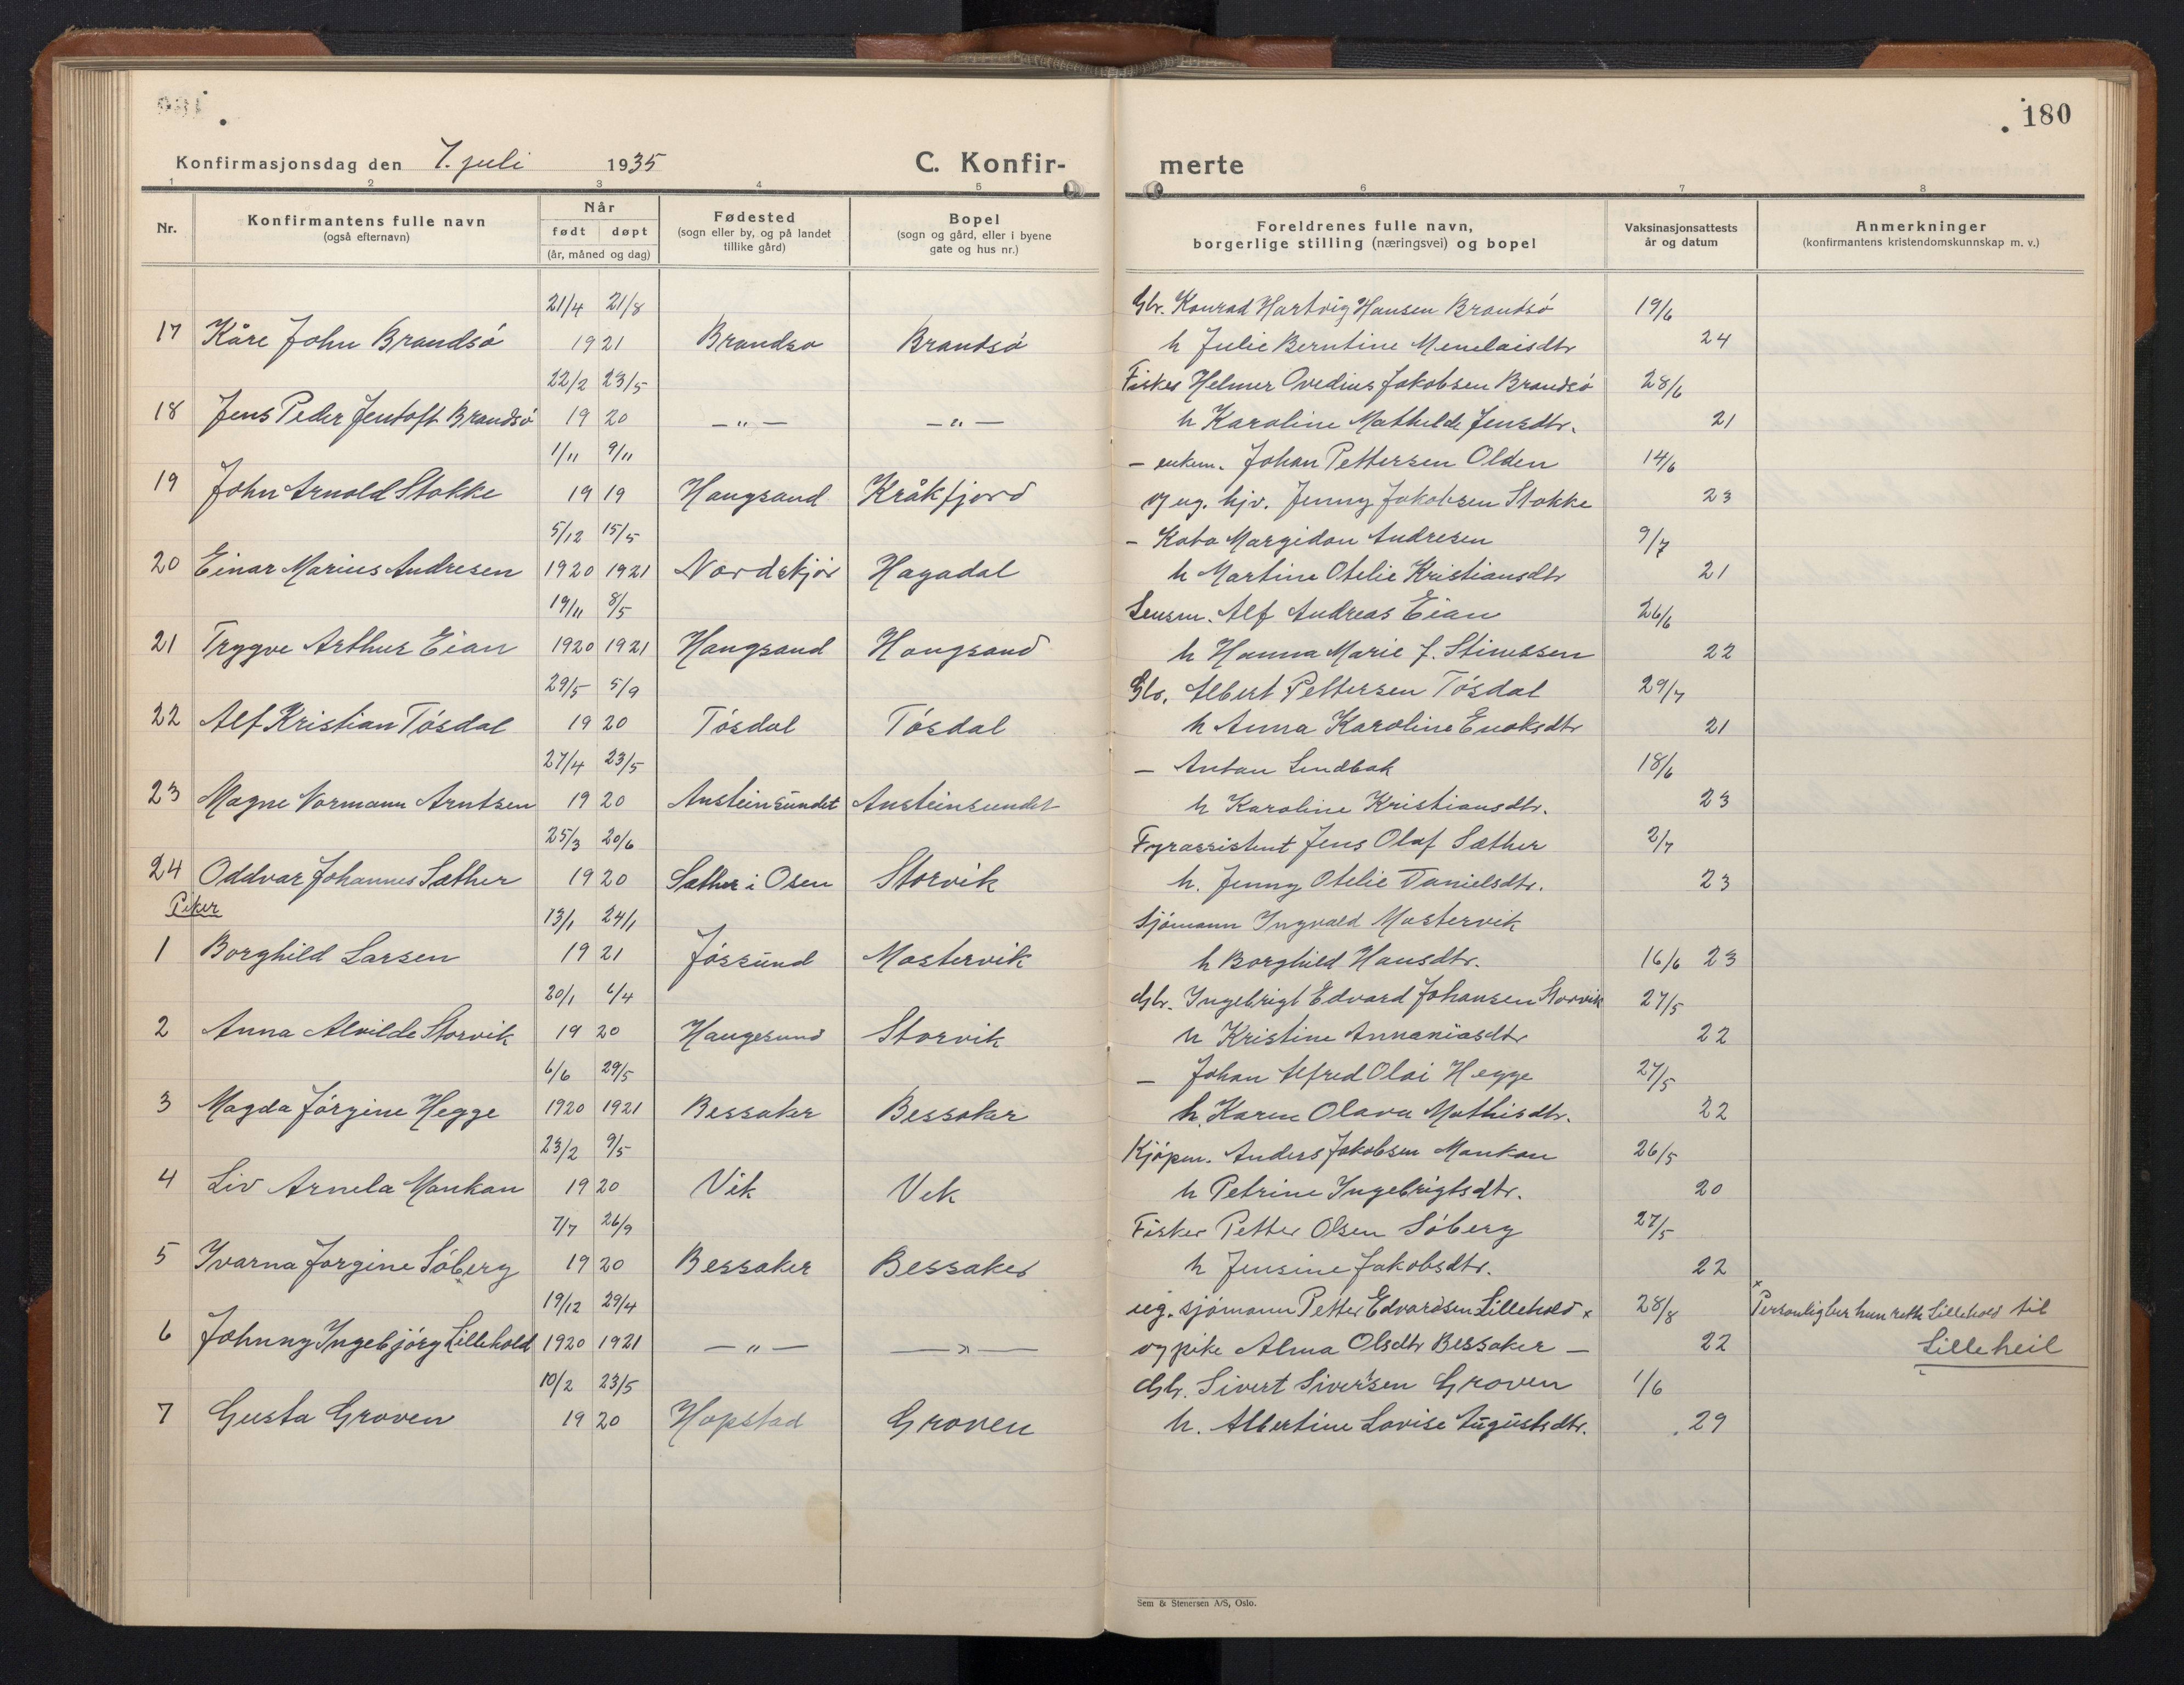 180
Konfirmasjonsdag den 7. juli 1935 C. Konfir- merte
1 2 3 4 5 6 7 8
Nr. Konfirmantens fulle navn (også efternavn) Når født døpt (år, måned og dag) Fødested (sogn eller by, og på landet tillike gård) Bopel (sogn og gård, eller i byene gate og hus nr.) Foreldrenes fulle navn, borgerlige stilling (næringsvei) og bopel Vaksinasjonsattests år og datum Anmerkninger (konfirmantens kristendomskunnskap m. v.)
21/4 21/8 Gbr. Konrad Hartvig Hansen Brandsö 19/6
17 Kåre John Brandsö 19 21 Brandsø Brandsö h Julie Berntine Menelaisdtr 24
22/2 23/5 Fisker Helmer Ovedius Jakobsen Brandsö 28/6
18 Jens Peder Jentoft Brandsö 19 20 — " — — " — h Karoline Mathilde Jensdtr. 21
1/11 9/11 — enkem. Johan Pettersen Olden 14/6
19 John Arnold Stokke 19 19 Haugsand Kråkfjord og ug. hjv. Jenny Jakobsen Stokke 23
5/12 15/5 — Kobo Margidon Andresen 9/7
20 Einar Marius Andresen 1920 1921 Nordskjör Hagadal h Martine Otelie Kristiansdtr 21
19/11 8/5 Lensm. Alf Andreas Eian 26/6
21 Trygve Arthur Eian 1920 1921 Haugsand Haugsand h Hanna Marie f. Stinessen 22
29/5 5/9 Gbr. Albert Pettersen Tösdal 29/7
22 Alf Kristian Tösdal 19 20 Tösdal Tösdal h Anna Karoline Enoksdtr 21
27/4 23/5 — Anton Lindbak 18/6
23 Magne Normann Arntsen 19 20 Austeinsundet Austeinsundet h Karoline Kristiansdtr. 23
25/3 20/6 Fyrassistent Jens Olaf Sæther 2/7
24 Oddvar Johannes Sæther 19 20 Sæther i Osen Storvik h. Jenny Otelie Danielsdtr. 23
Piker 13/1 24/1 Sjömann Ingvald Mastervik
1 Borghild Larsen 19 21 Jössund Mastervik h Borghild Hansdtr. 16/6 23
20/1 6/4 Gbr. Ingebrigt Edvard Johansen Storvik 27/5
2 Anna Alvilde Storvik 19 20 Haugesund Storvik h Kristine Annaniasdtr 22
6/6 29/5 — Johan Alfred Olai Hegge 27/5
3 Magda Jörgine Hegge 1920 1921 Bessaker Bessaker h. Karen Olava Mathisdtr. 22
23/2 9/5 Kjöpm. Anders Jakobsen Mankan 26/5
4 Liv Arnela Mankan 19 20 Vik Vik h Petrine Ingebrigtsdtr. 20
7/7 26/9 Fisker Petter Olsen Söberg 27/5
5 Ivarna Jorgine Söberg 19 20 Bessaker Bessaker h Jensine Jakobsdtr. 22
19/12 29/4 ug. sjömann Petter Edvardsen Lillehold x 28/8 x Personlig ber hun rette Lillehold til
6 Johnny Ingebjörg Lillehold 1920 1921 — " — — " — og pike Alma Olsdtr Bessaker — 22 Lilleheil
10/2 23/5 Gbr. Sivert Siversen Groven 1/6
7 Gusta Groven 19 20 Hopstad Groven h. Albertine Lovise Augustsdtr. 29
Sem & Stenersen A/S, Oslo.